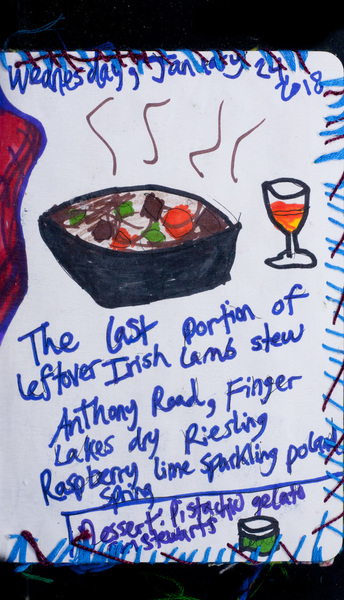 Wednesday, January 24
2018
The last portion of
leftover Irish Lamb stew
Anthony Road, Finger
Lakes dry Riesling
Raspberry lime sparkling poland
spring
Dessert: Pistachio gelato
stewarts